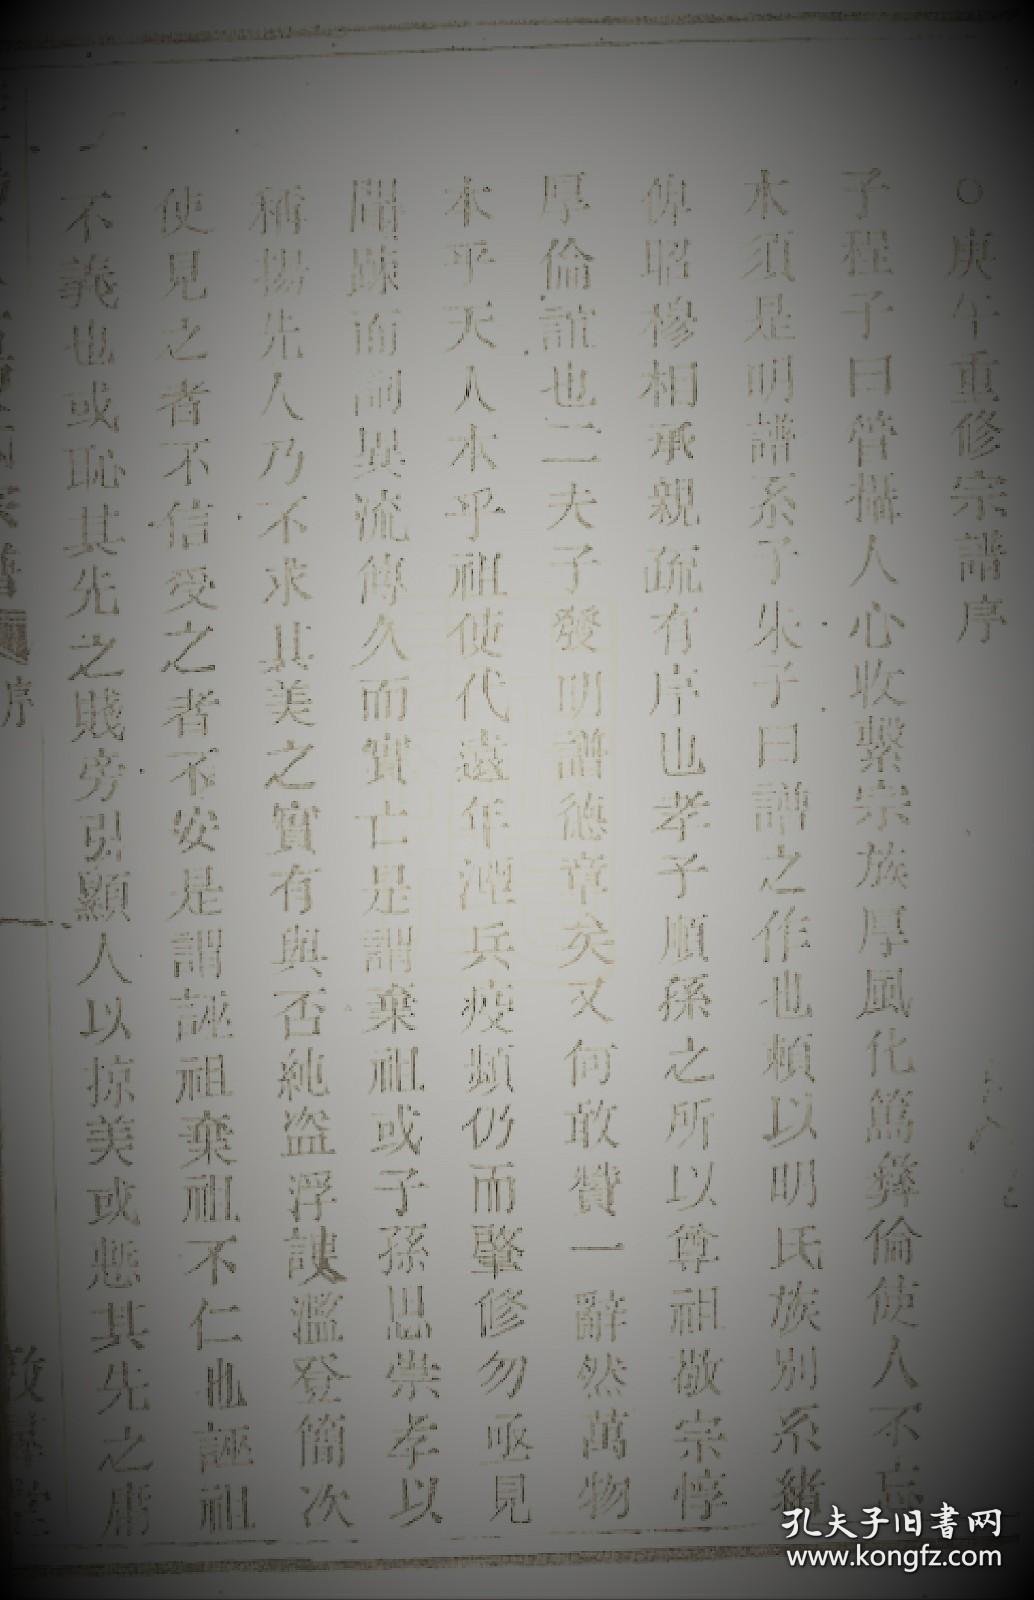 ○庚午重修宗譜序
子程子曰管攝人心收繫宗族厚風化篤彝倫使人不忘
本須是明譜系子朱子曰譜之作也頼以明氏族別系緒
俾昭穆相承親疏有序也孝子順孫之所以尊祖敬宗惇
厚倫誼也二夫子發明譜德章矣又何敢贊一辭然萬物
本乎天人本乎祖使代遠年湮兵疫頻仍而肇修勿亟見
聞踈而詞異流傳久而實亡是謂棄祖或子孫思崇孝以
稱揚先人乃不求其美之實有與否純盜浮諛濫登簡次
使見之者不信受之者不安是謂誣祖棄祖不仁也誣祖
不義也或恥其先之賤旁引顯人以掠美或慙其先之庸
序
敦睦堂
孔夫子旧書网
www.kongfz.com